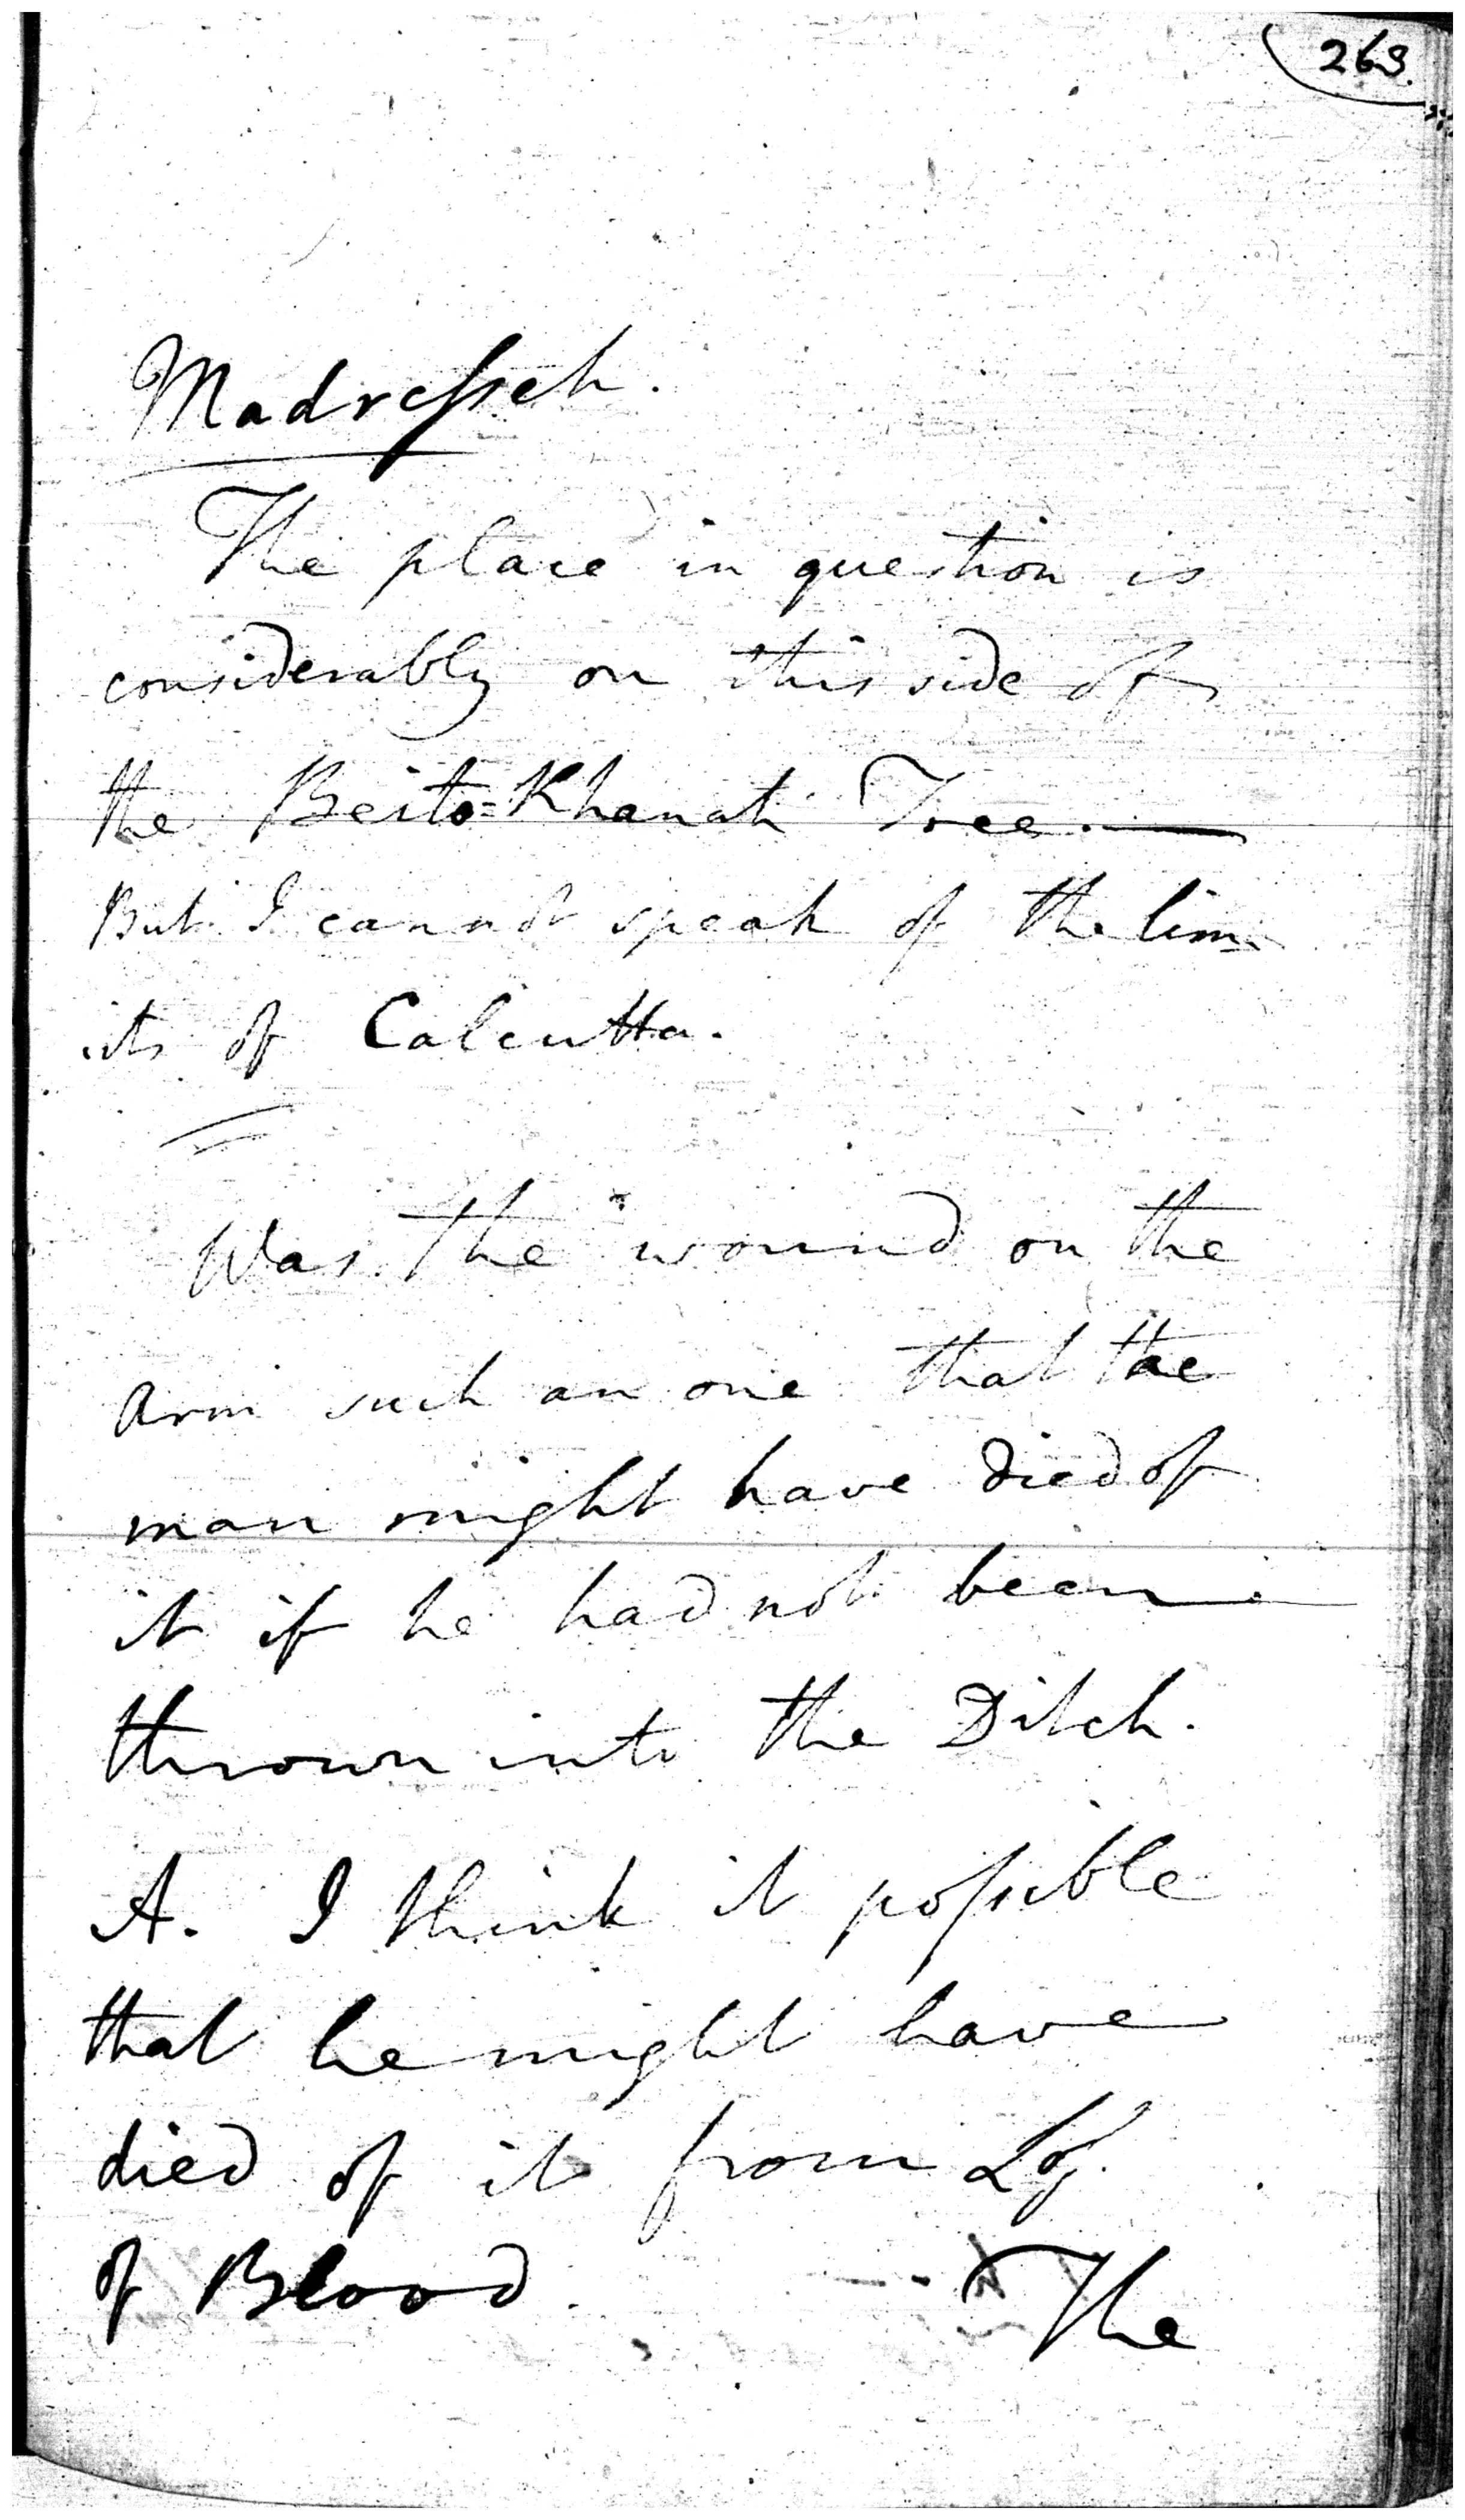 263.
Madresseh.
The place in question is
considerably on this side of
the Beito=Khanah Tree.—
But I cannot speak of the lim
its of Calcutta.
Was the wound on the
arm such an one that the
man might have died of
it if he had not been
thrown into the Ditch.
A. I think it possible
that he might have
died of it from Loss
of Blood. The